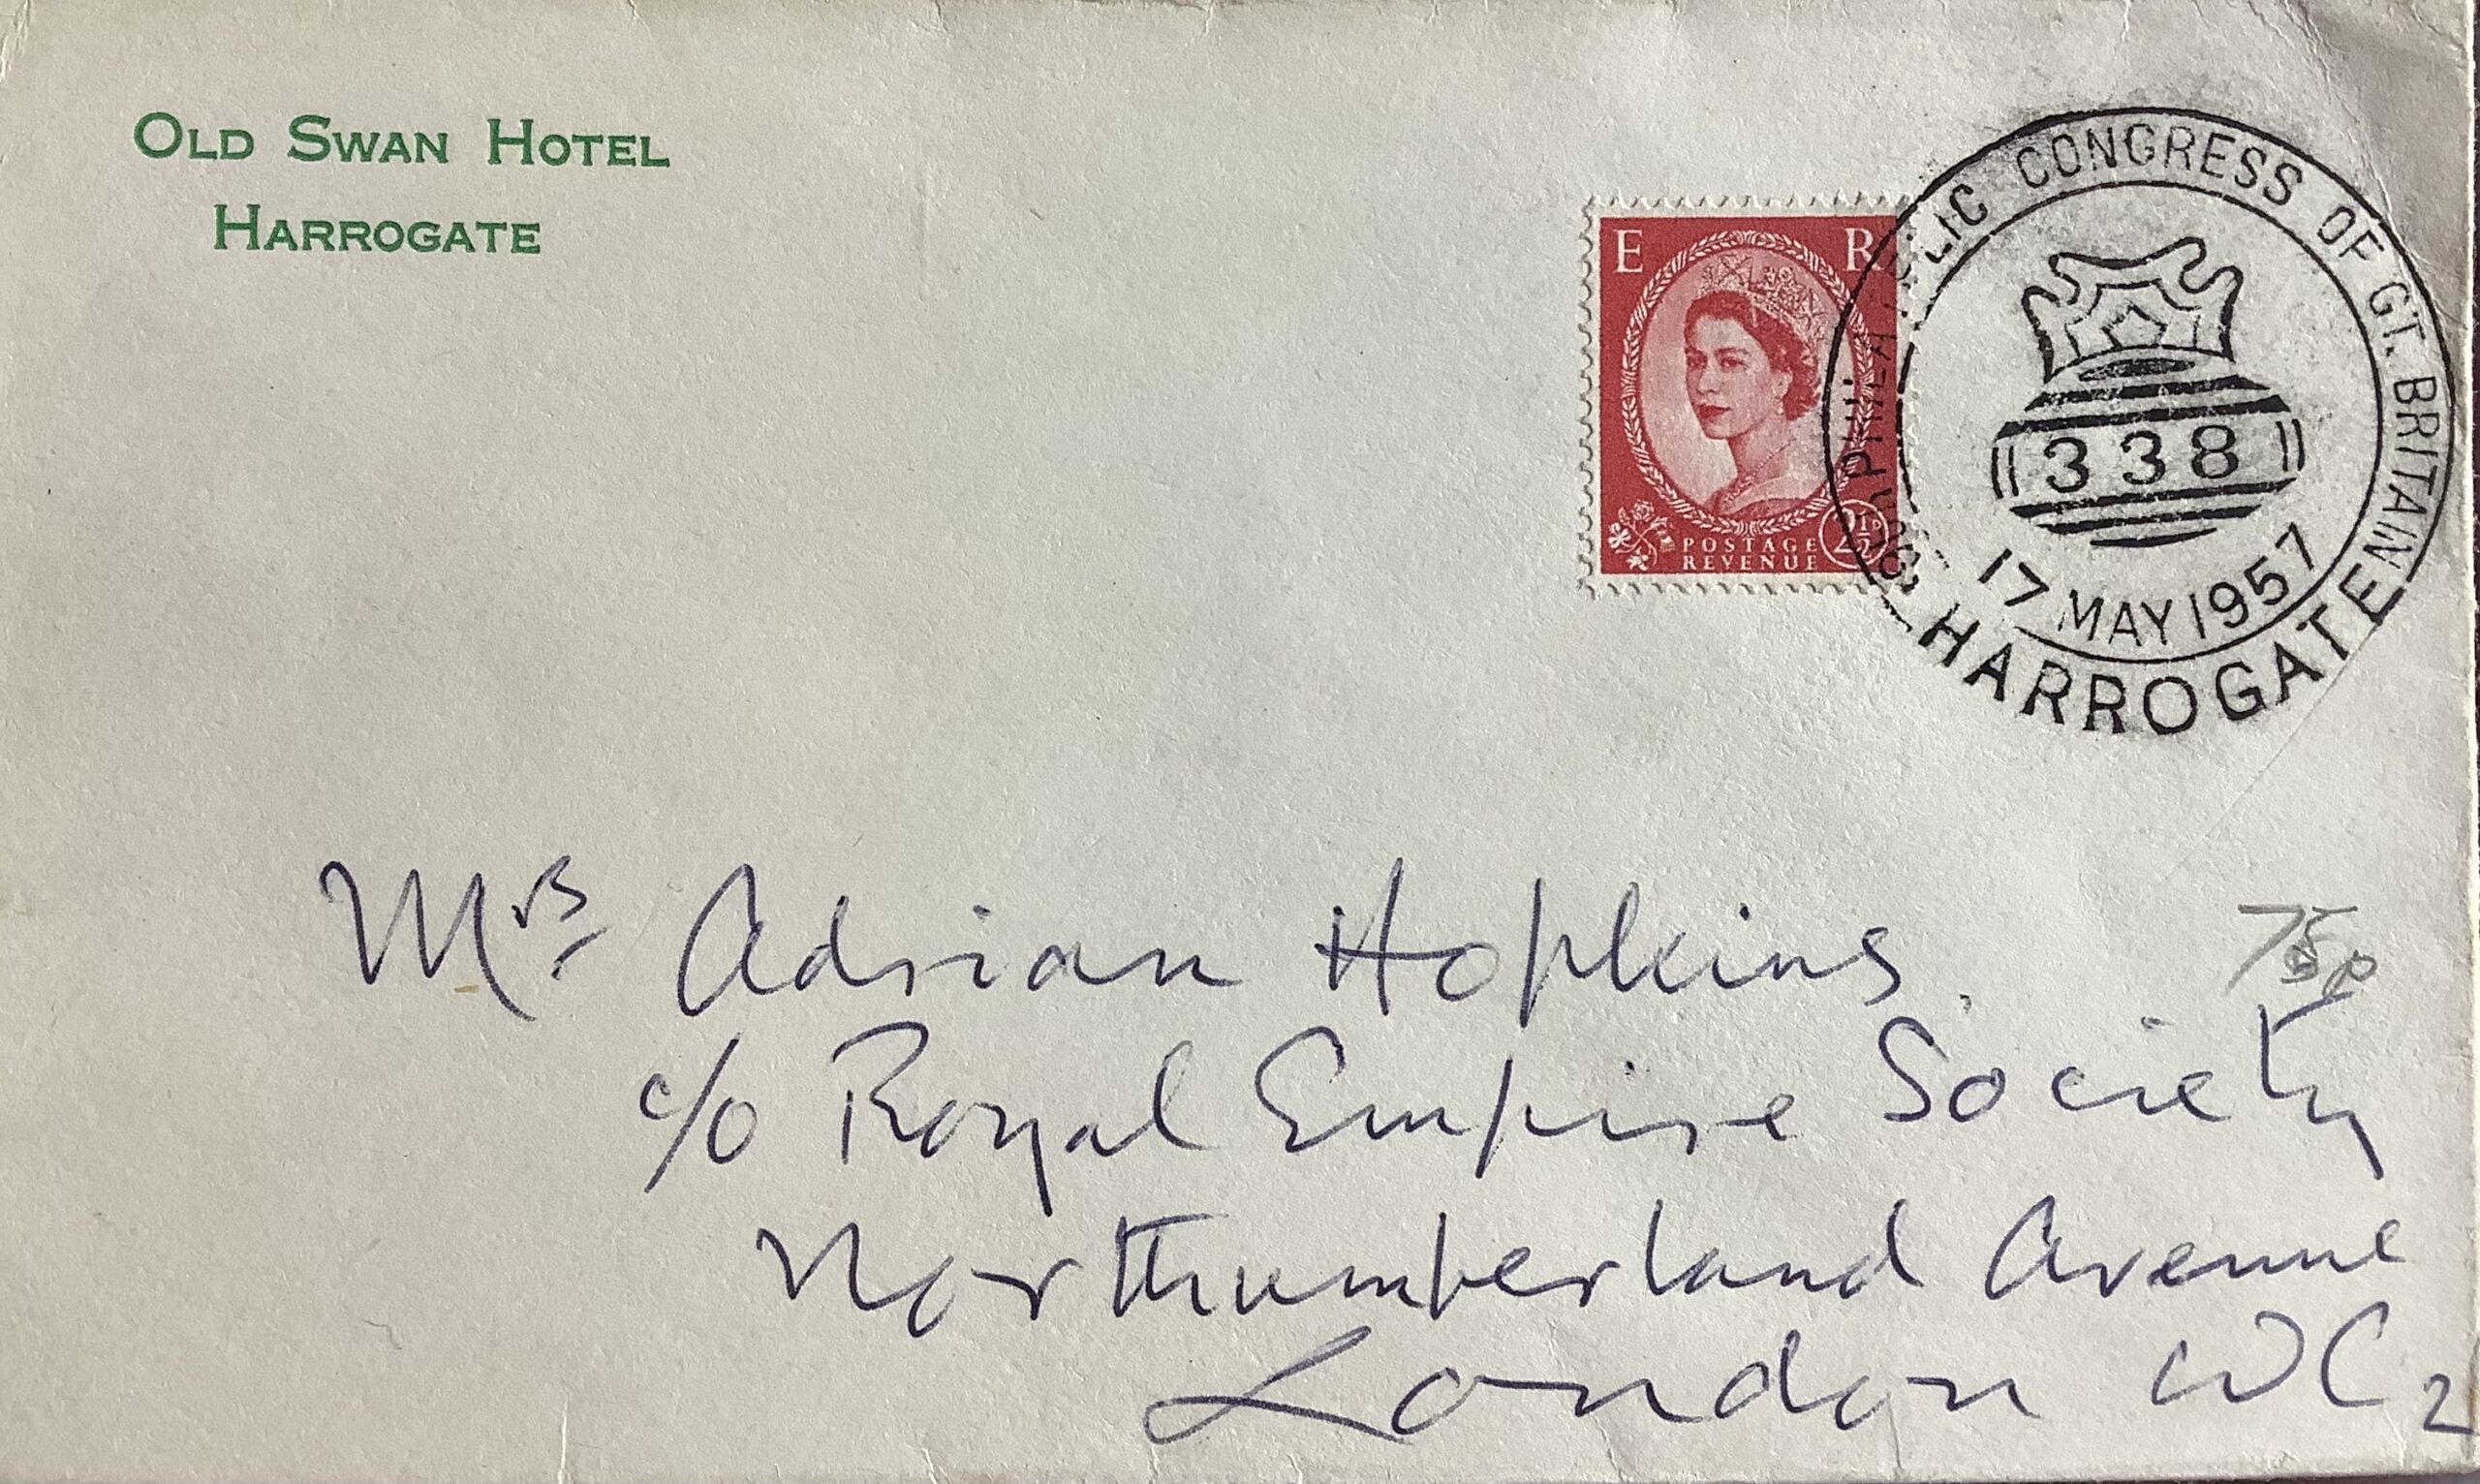 OLD SWAN HOTEL
HARROGATE
E R
POSTAGE 2½D
REVENUE
PHILATELIC CONGRESS OF GT. BRITAIN
338
17 MAY 1957
HARROGATE
Mrs Adrian Hopkins
75p
c/o Royal Empire Society
Northumberland Avenue
London WC2